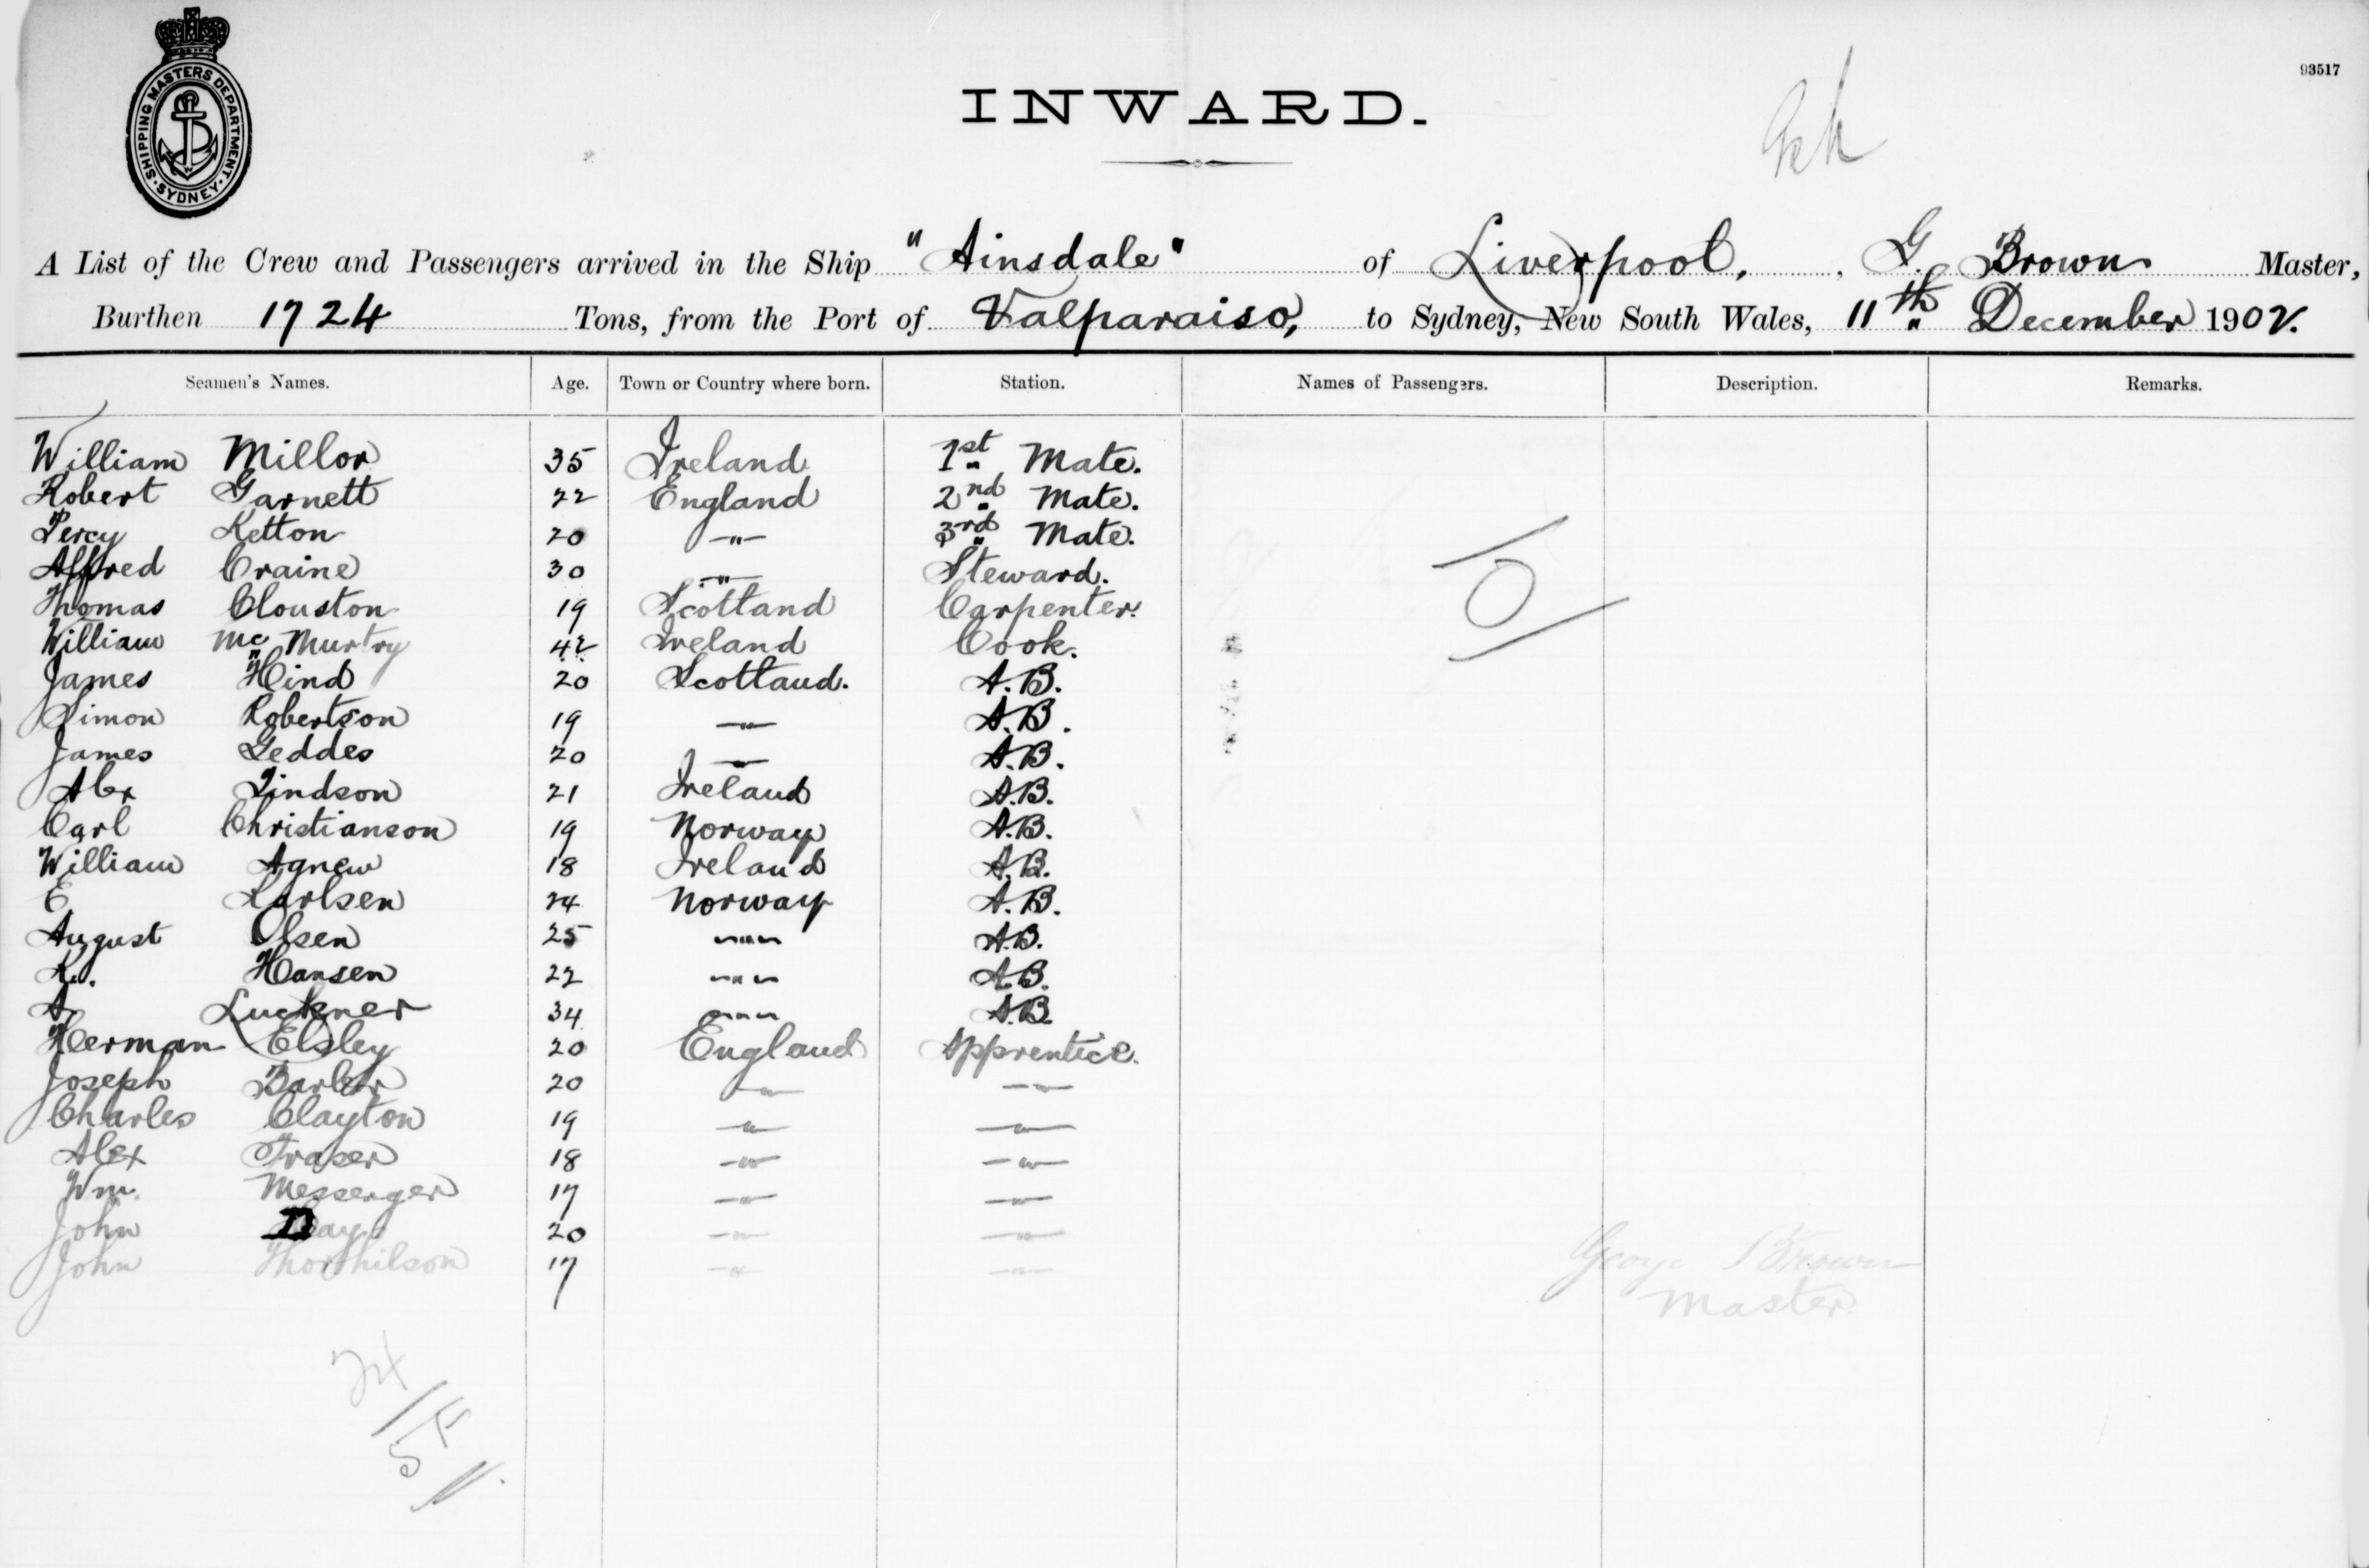 SHIPPING MASTERS DEPARTMENT
SYDNEY
93517
INWARD.
A List of the Crew and Passengers arrived in the Ship "Ainsdale" of Liverpool, , G. Brown Master,
Burthen 1724 Tons, from the Port of Valparaiso, to Sydney, New South Wales, 11th December 1902.
Seamen's Names. Age. Town or Country where born. Station. Names of Passengers. Description. Remarks.
William Millor 35 Ireland 1st Mate.
Robert Garnett 22 England 2nd Mate.
Percy Ketton 20 -"- 3rd Mate.
Alfred Craine 30 -"- Steward.
Thomas Clouston 19 Scotland Carpenter.
William McMurtry 42 Ireland Cook.
James Hind 20 Scotland. A.B.
Simon Robertson 19 -"- A.B.
James Geddes 20 -"- A.B.
Alex Lindson 21 Ireland A.B.
Carl Christianson 19 Norway A.B.
William Agnew 18 Ireland A.B.
E Karlsen 24 Norway A.B.
August Olsen 25 -"- A.B.
K. Hansen 22 -"- A.B.
A. Luckner 34 -"- A.B.
Herman Elsley 20 England Apprentice.
Joseph 20 -"- -"-
Charles Clayton 19 -"- -"-
Alex Fraser 18 -"- -"-
Wm. Messenger 17 -"- -"-
John Day 20 -"- -"-
John 17 -"- -"-
George Brown
Master